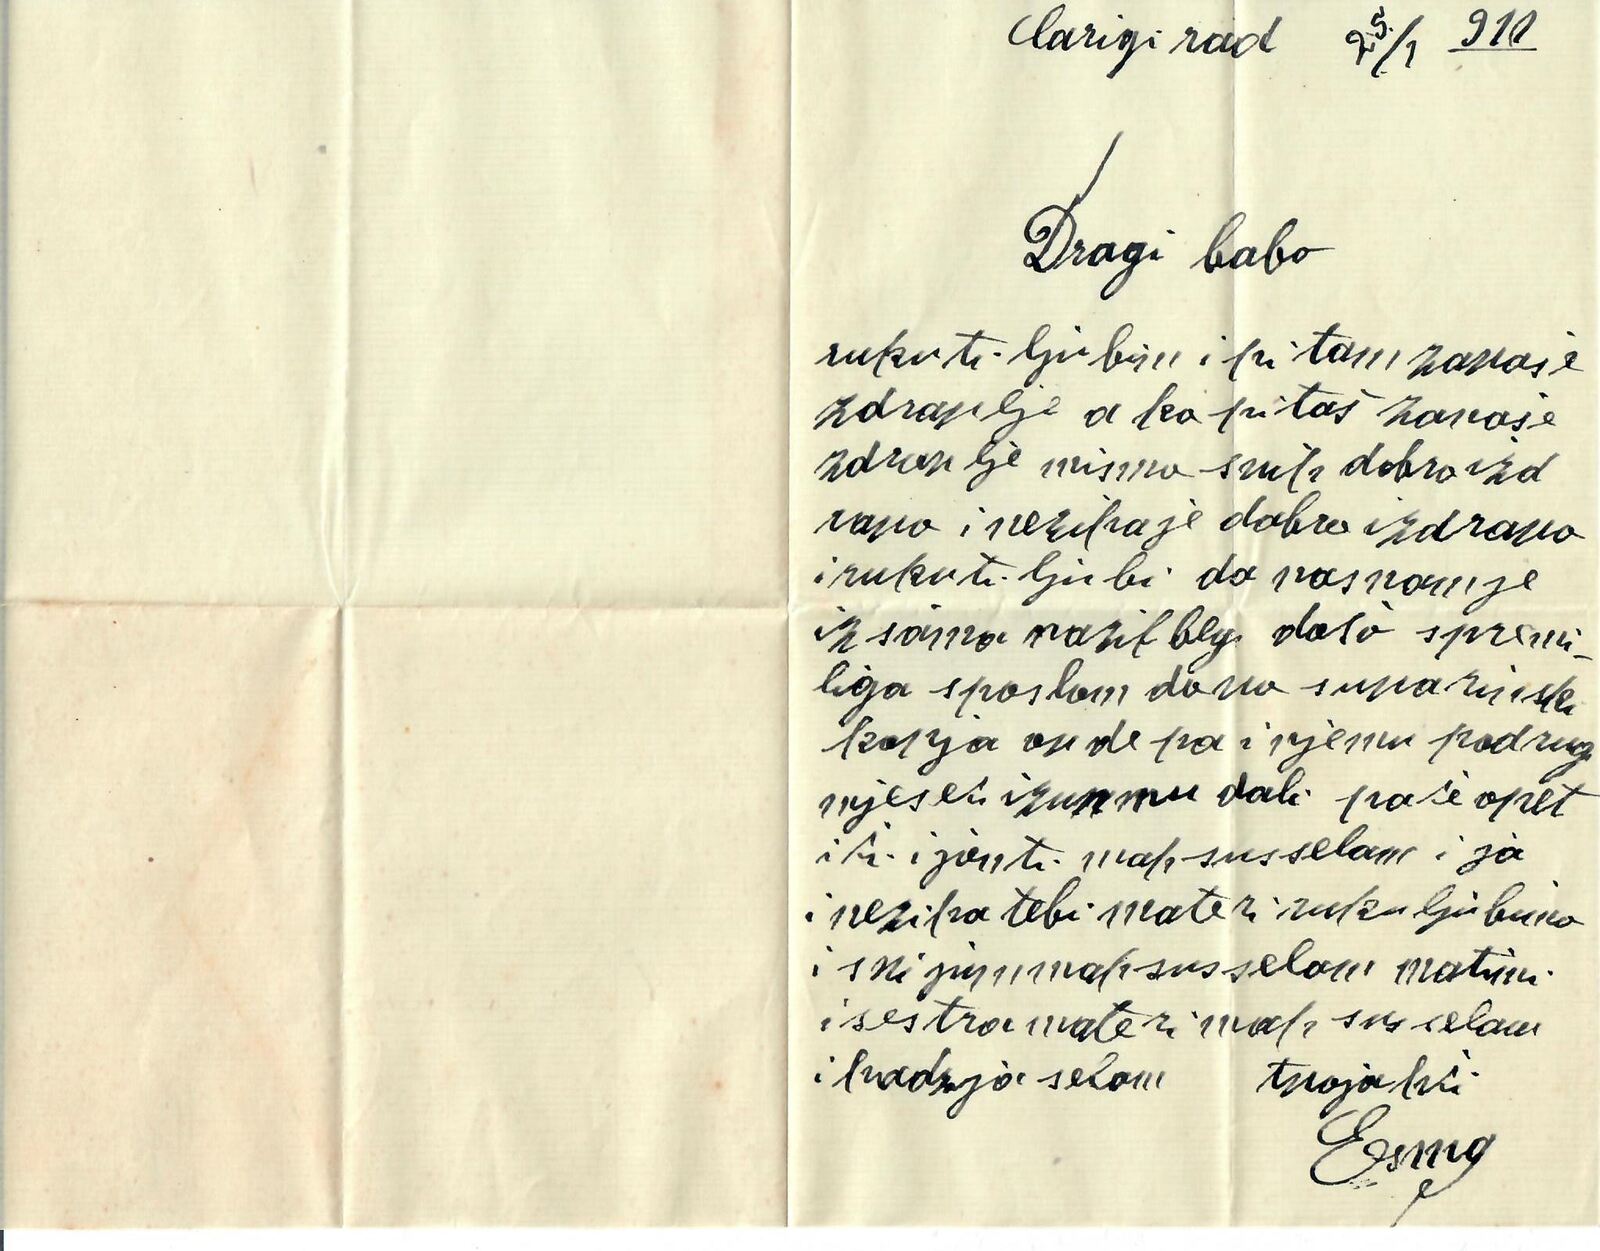 Carigirad 25/1 911
Dragi babo
ruku ti ljubim i pitam za vaše
zdravlje ako pitaš za naše
zdravlje mi smo svih dobro i zd
ravo i nezifa je dobro i zdravo
i ruku ti ljubi da vas nam je
iz šama nazif beg došo spremi-
li ga s poslom
konja ovde pa i njemu podrug
mjeseci izun mu dali pa će opet
ići i jon ti mahsus selam i ja
i nezifa tebi materi ruku ljubimo
i svi jim mahsus selam matimi
i sestra materi mahsus selam
i hadzja selam tvoja kći
Esma